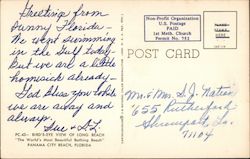 Greeting from
Sunny Florida -
We went swimming
in the Gulf today -
but we are a little
homesick already -
God bless you while
we are away and
always.
Sue & A.L.
PC.43— BIRD'S-EYE VIEW OF LONG BEACH
"The World's Most Beautiful Bathing Beach"
PANAMA CITY BEACH, FLORIDA
Non-Profit Organization
U.S. Postage
PAID
1st Meth. Church
Permit No. 752
POST CARD
Mr. & Mrs. S.J. Nation
655 Rutherford
Shreveport, La.
71104